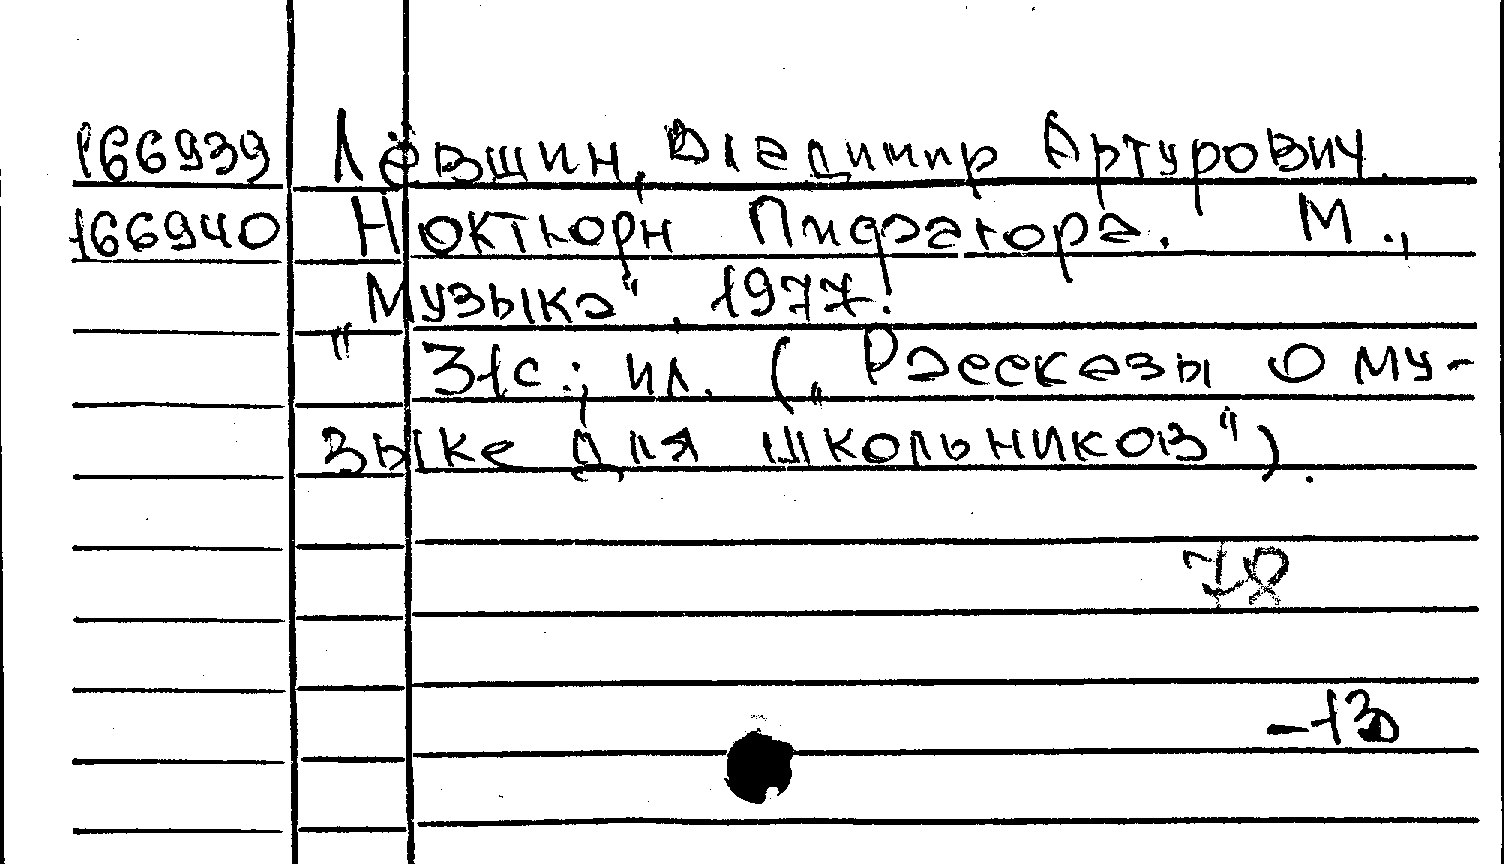 166939 Лёвшин, Владимир Артурович.
166940 Ноктюрн Пифагора. М.,
„Музыка“, 1977.
31с.; ил. („Рассказы о му-
зыке для школьников“).
78